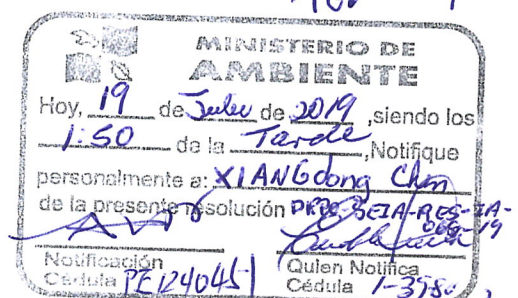 MINISTERIO DE
AMBIENTE
Hoy, 19 de Julio de 2019, siendo los
1:50 de la Tarde, Notifique
personalmente a: XIANGdong Chen
de la presente resolución DRPO-SEIA-RES-IA-
-19
Notificación Quien Notifica
Cédula PE124045 Cédula